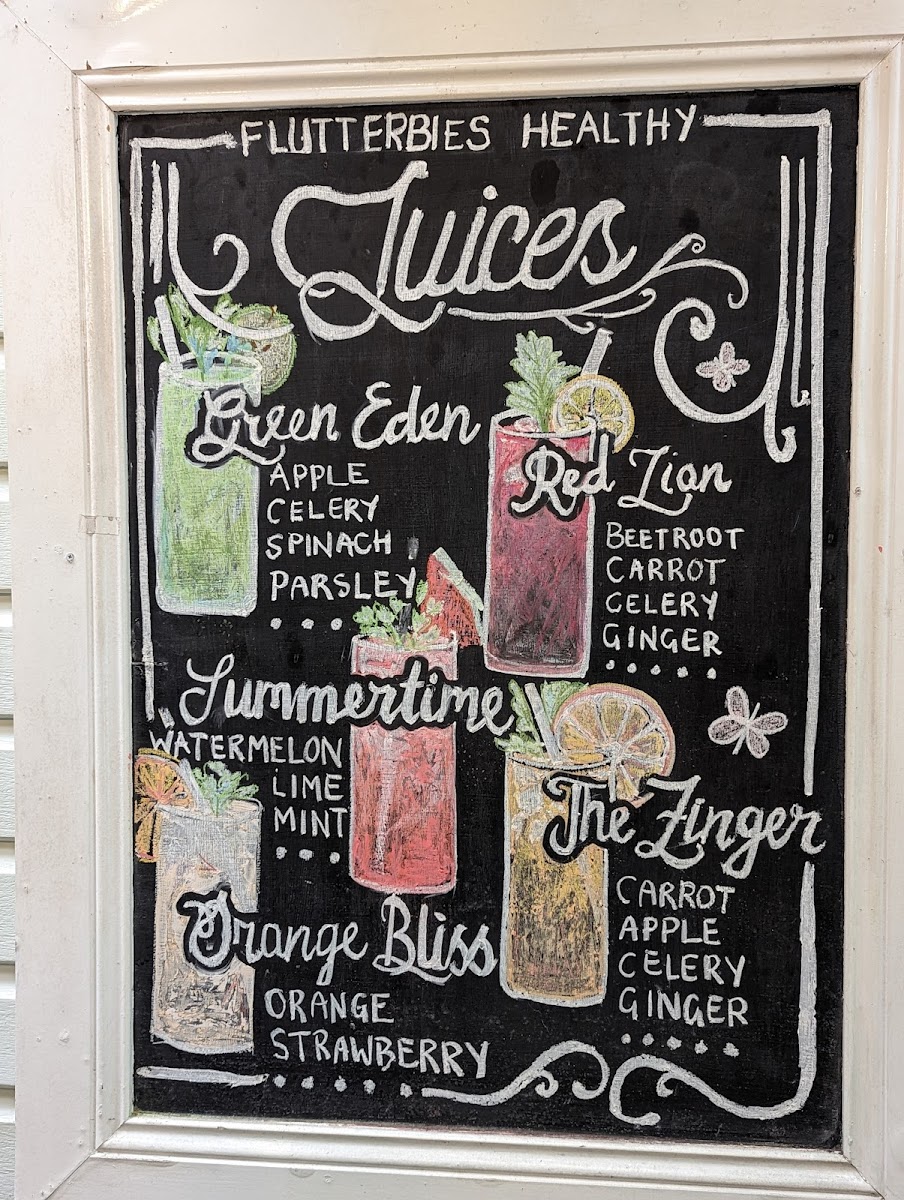 FLUTTERBIES HEALTHY
Juices
Green Eden
APPLE
CELERY
SPINACH
PARSLEY
Red Zion
BEETROOT
CARROT
CELERY
GINGER
Summertime
WATERMELON
LIME
MINT
The Zinger
CARROT
APPLE
CELERY
GINGER
Orange Bliss
ORANGE
STRAWBERRY